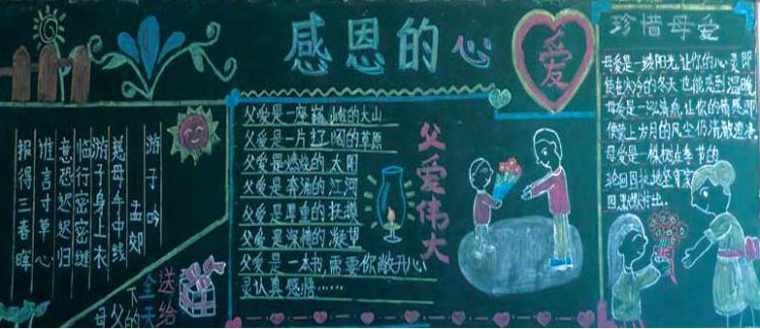 感恩的心
爱
游子吟
孟郊
慈母手中线
游子身上衣
临行密密缝
意恐迟迟归
谁言寸草心
报得三春晖
送给
全天
下的
父
母
父爱是一座巍峨的大山
父爱是一片 的草原
父爱是燃烧的太阳
父爱是奔涌的江河
父爱是厚重的
父爱是深情的凝望
父爱是一本书,需要你敞开心
灵认真感悟……
父爱伟大
珍惜母爱
母爱是一缕阳光,让你的心灵即
使在寒冷的冬天也能感到温暖
母爱是一泓清泉,让你的情感即
使蒙上岁月的风尘仍清澈澄净。
母爱是一棵树,在季节的
轮回里